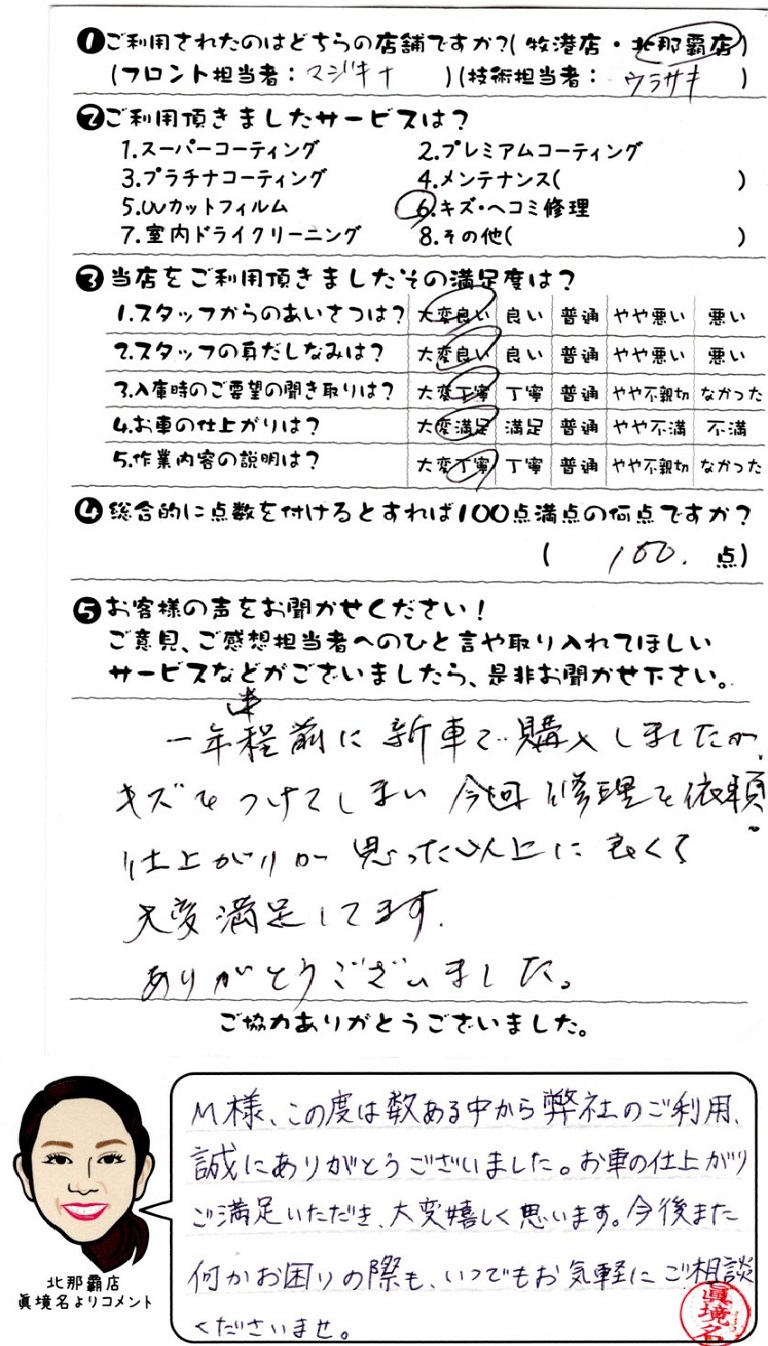 ❶ご利用されたのはどちらの店舗ですか?(牧港店・北那覇店)
(フロント担当者:マジキナ)(技術担当者:ウラサキ)
❷ご利用頂きましたサービスは?
1.スーパーコーティング 2.プレミアムコーティング
3.プラチナコーティング 4.メンテナンス( )
5.UVカットフィルム 6.キズ・ヘコミ修理
7.室内ドライクリーニング 8.その他( )
❸当店をご利用頂きましたその満足度は?
1.スタッフからのあいさつは? 大変良い 良い 普通 やや悪い 悪い
2.スタッフの身だしなみは? 大変良い 良い 普通 やや悪い 悪い
3.入庫時のご要望の聞き取りは? 大変丁寧 丁寧 普通 やや不親切 なかった
4.お車の仕上がりは? 大変満足 満足 普通 やや不満 不満
5.作業内容の説明は? 大変丁寧 丁寧 普通 やや不親切 なかった
❹総合的に点数を付けるとすれば100点満点の何点ですか?
( 100. 点)
❺お客様の声をお聞かせください!
ご意見、ご感想担当者へのひと言や取り入れてほしい
サービスなどがございましたら、是非お聞かせ下さい。
一年半程前に新車で購入しましたが、
キズをつけてしまい今回修理を依頼。
仕上がりが思った以上に良くて
大変満足してます.
ありがとうございました。
ご協力ありがとうございました。
M様、この度は数ある中から弊社のご利用、
誠にありがとうございました。お車の仕上がり
ご満足いただき、大変嬉しく思います。今後また
何かお困りの際も、いつでもお気軽にご相談
くださいませ。
北那覇店
眞境名よりコメント
眞境名